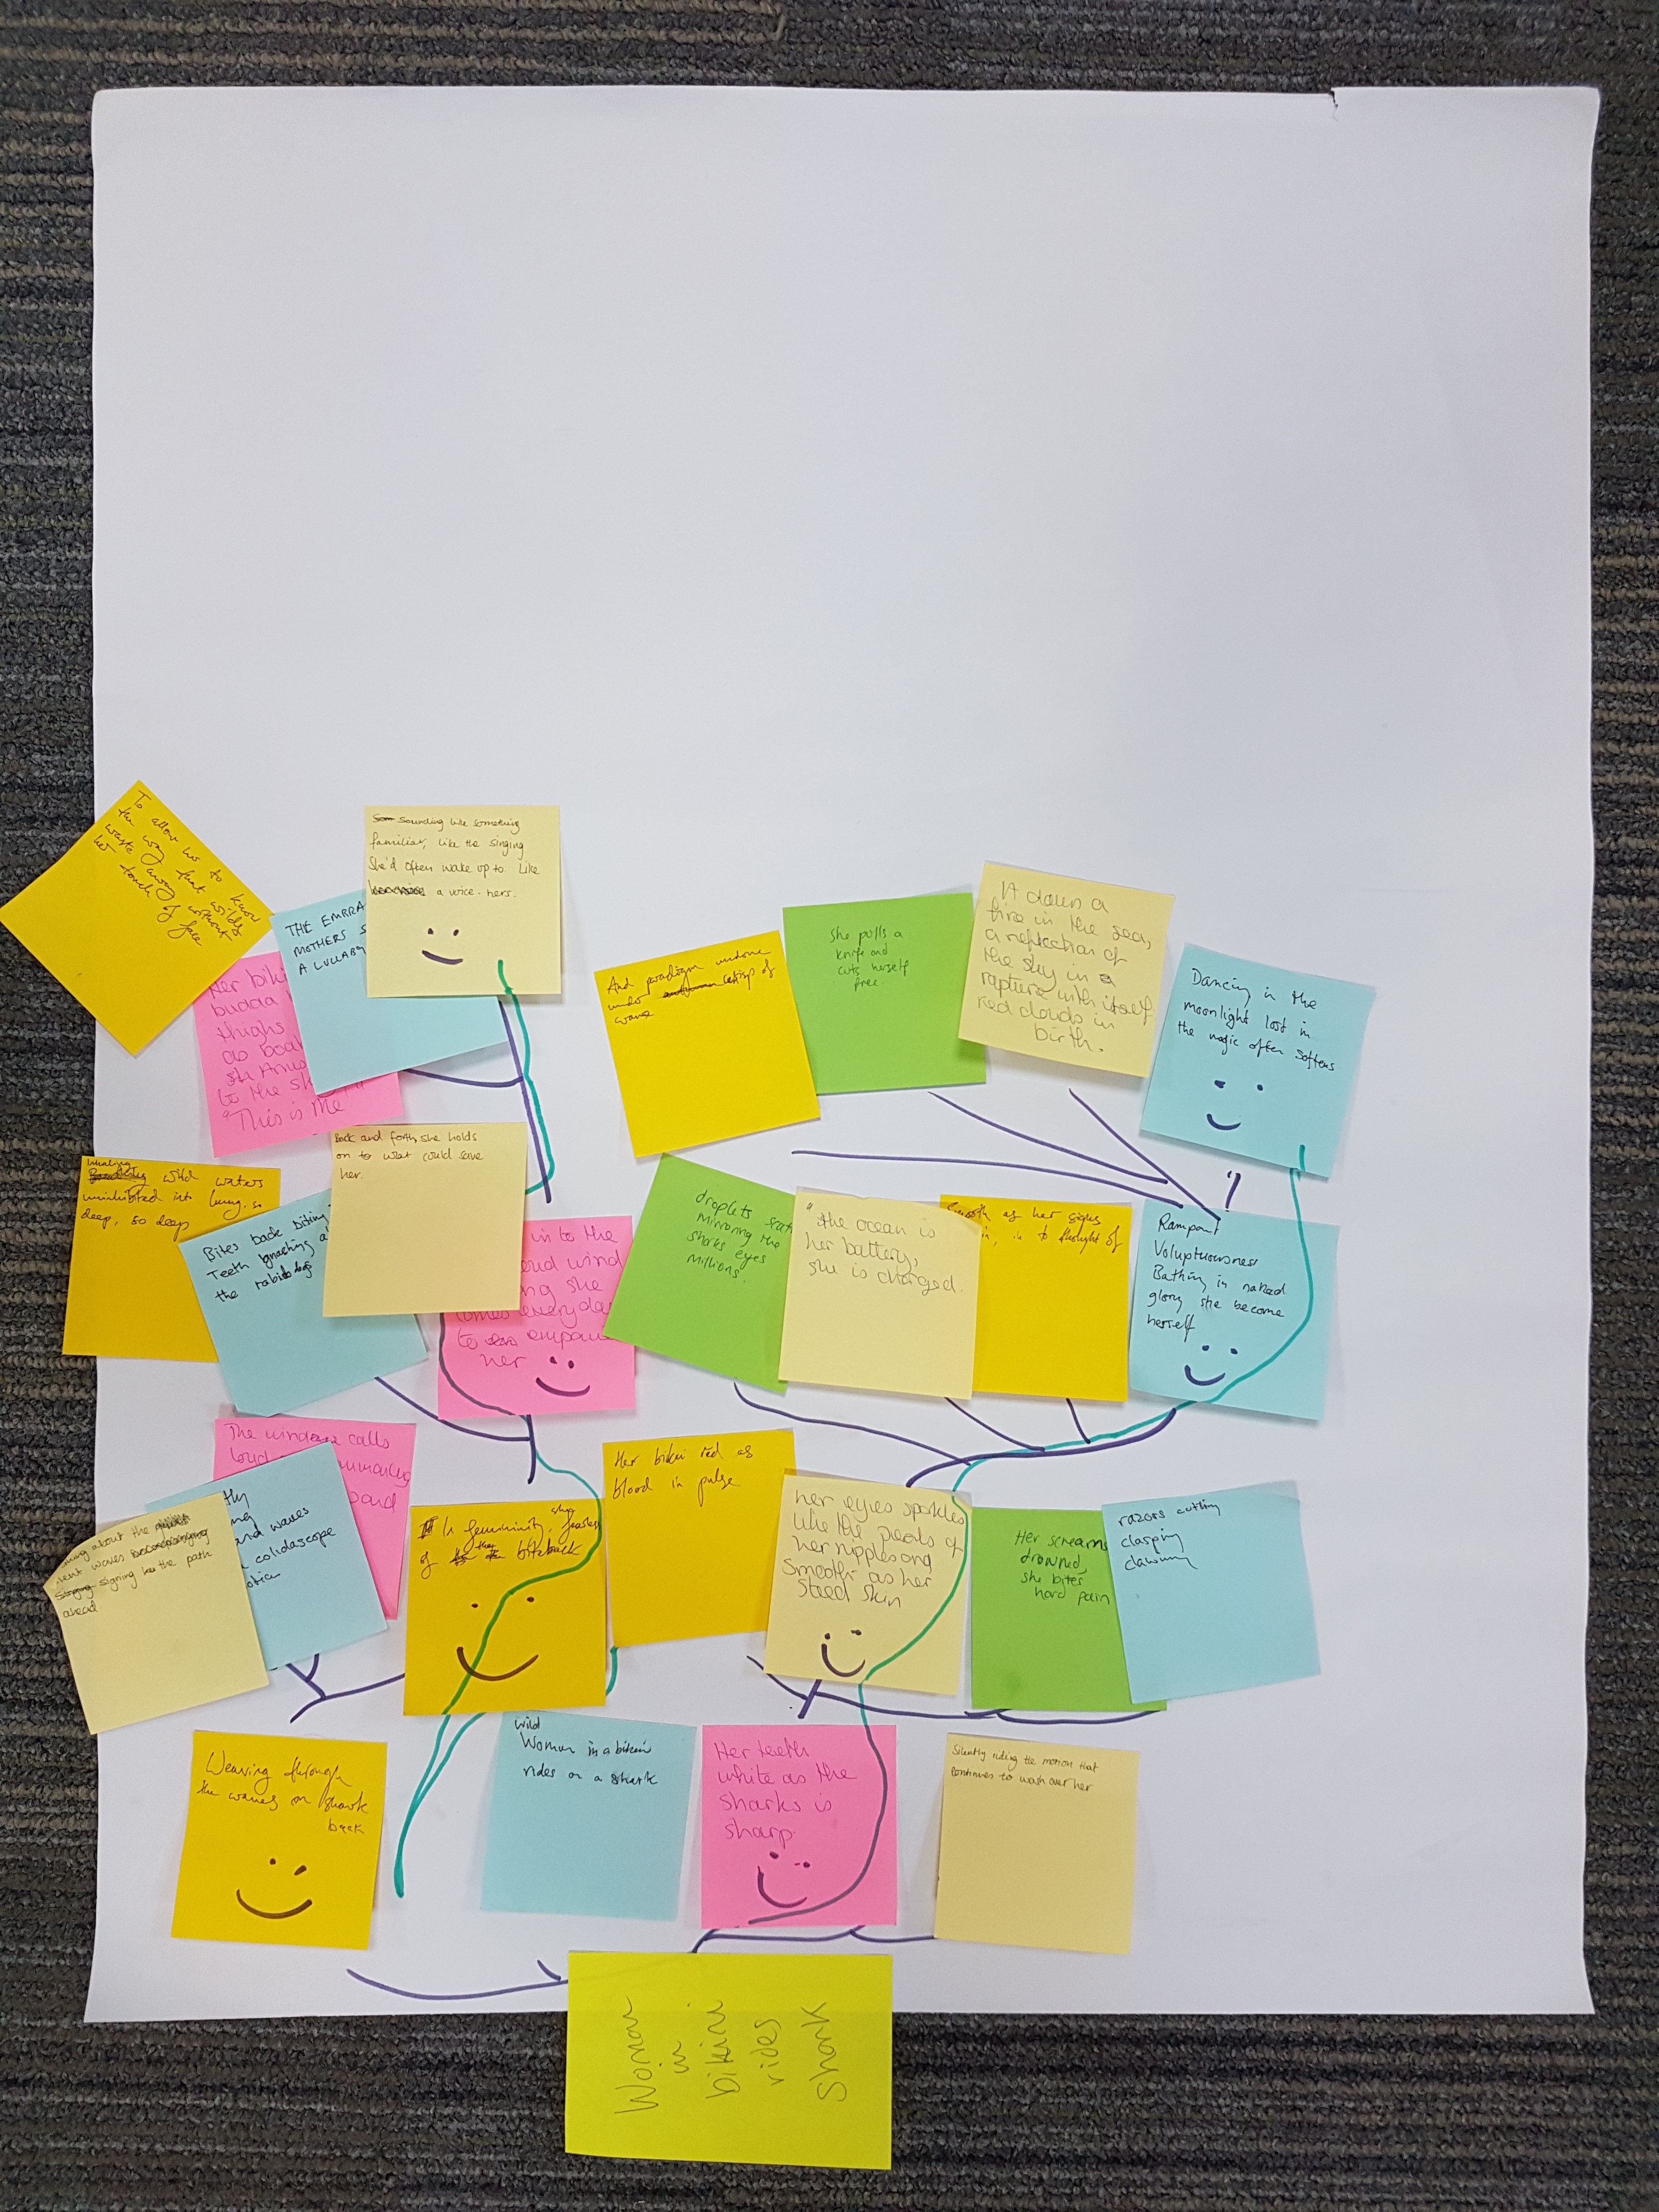 To allow us to know
the way that wilds
waste away without
her touch of
sounding like something
familiar, like the singing
She'd often wake up to. Like
a voice - hers.
THE EMBRA
MOTHERS S
A LULLABY
Her biki
budda
thighs
as boa
Arms
to the s
"This is Me"
And paradigm undone
undo of
wave
She pulls a
knife and
cuts herself
free.
It dawn a
fire in the sea,
a reflection of
the sky in a
rapture with itself
red clouds in
birth.
Dancing in the
moonlight lost in
the magic often softens
wild waters
uninhibited into being, so
deep, so deep
Bites back biting
Teeth gnashing a
the rabid dog
Back and forth she holds
on to what could save
her.
in to the
wind
ng she
comes everyday
to empow
her
droplets scat
mirroring the
sharks eyes
millions.
"the ocean is
her battery,
she is charged.
Smooth as her signs
in, in to thought of
Rampant
Voluptuousness
Bathing in naked
glory she become
herself
The wind calls
loud
oard
tly
ng
and waves
colidascope
otic
ming about the
lent waves
signing the path
ahead
In femininity,
of bite back
Her bikini red as
blood in pulse
her eyes sparkles
like the pearls of
her nipples and
smooth as her
steed skin
Her screams
drowned,
she bites
hard pain
razors cutting
clasping
clawing
Weaving through
the waves on shark
back
wild
Woman in a bikini
rides on a shark
Her teeth
white as the
sharks is
sharp.
Silently riding the motion that
continues to wash over her
Woman
in
bikini
rides
Shark